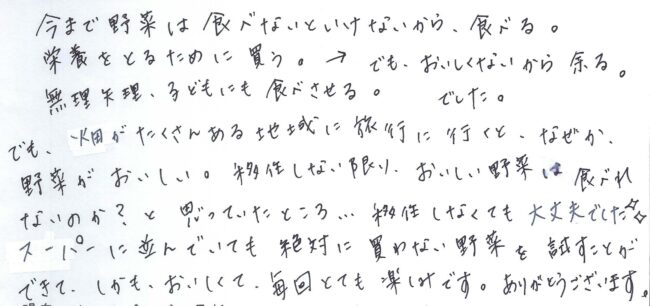 今まで野菜は食べないといけないから、食べる。
栄養をとるために買う。→ でも、おいしくないから余る。
無理矢理、子どもにも食べさせる。 でした。
でも、畑がたくさんある地域に旅行に行くと、なぜか、
野菜がおいしい。移住しない限り、おいしい野菜は食べれ
ないのか？と思っていたところ…移住しなくても大丈夫でした☆☆
スーパーに並んでいても絶対に買わない野菜を試すことが
できて、しかも、おいしくて、毎回とても楽しみです。ありがとうございます。